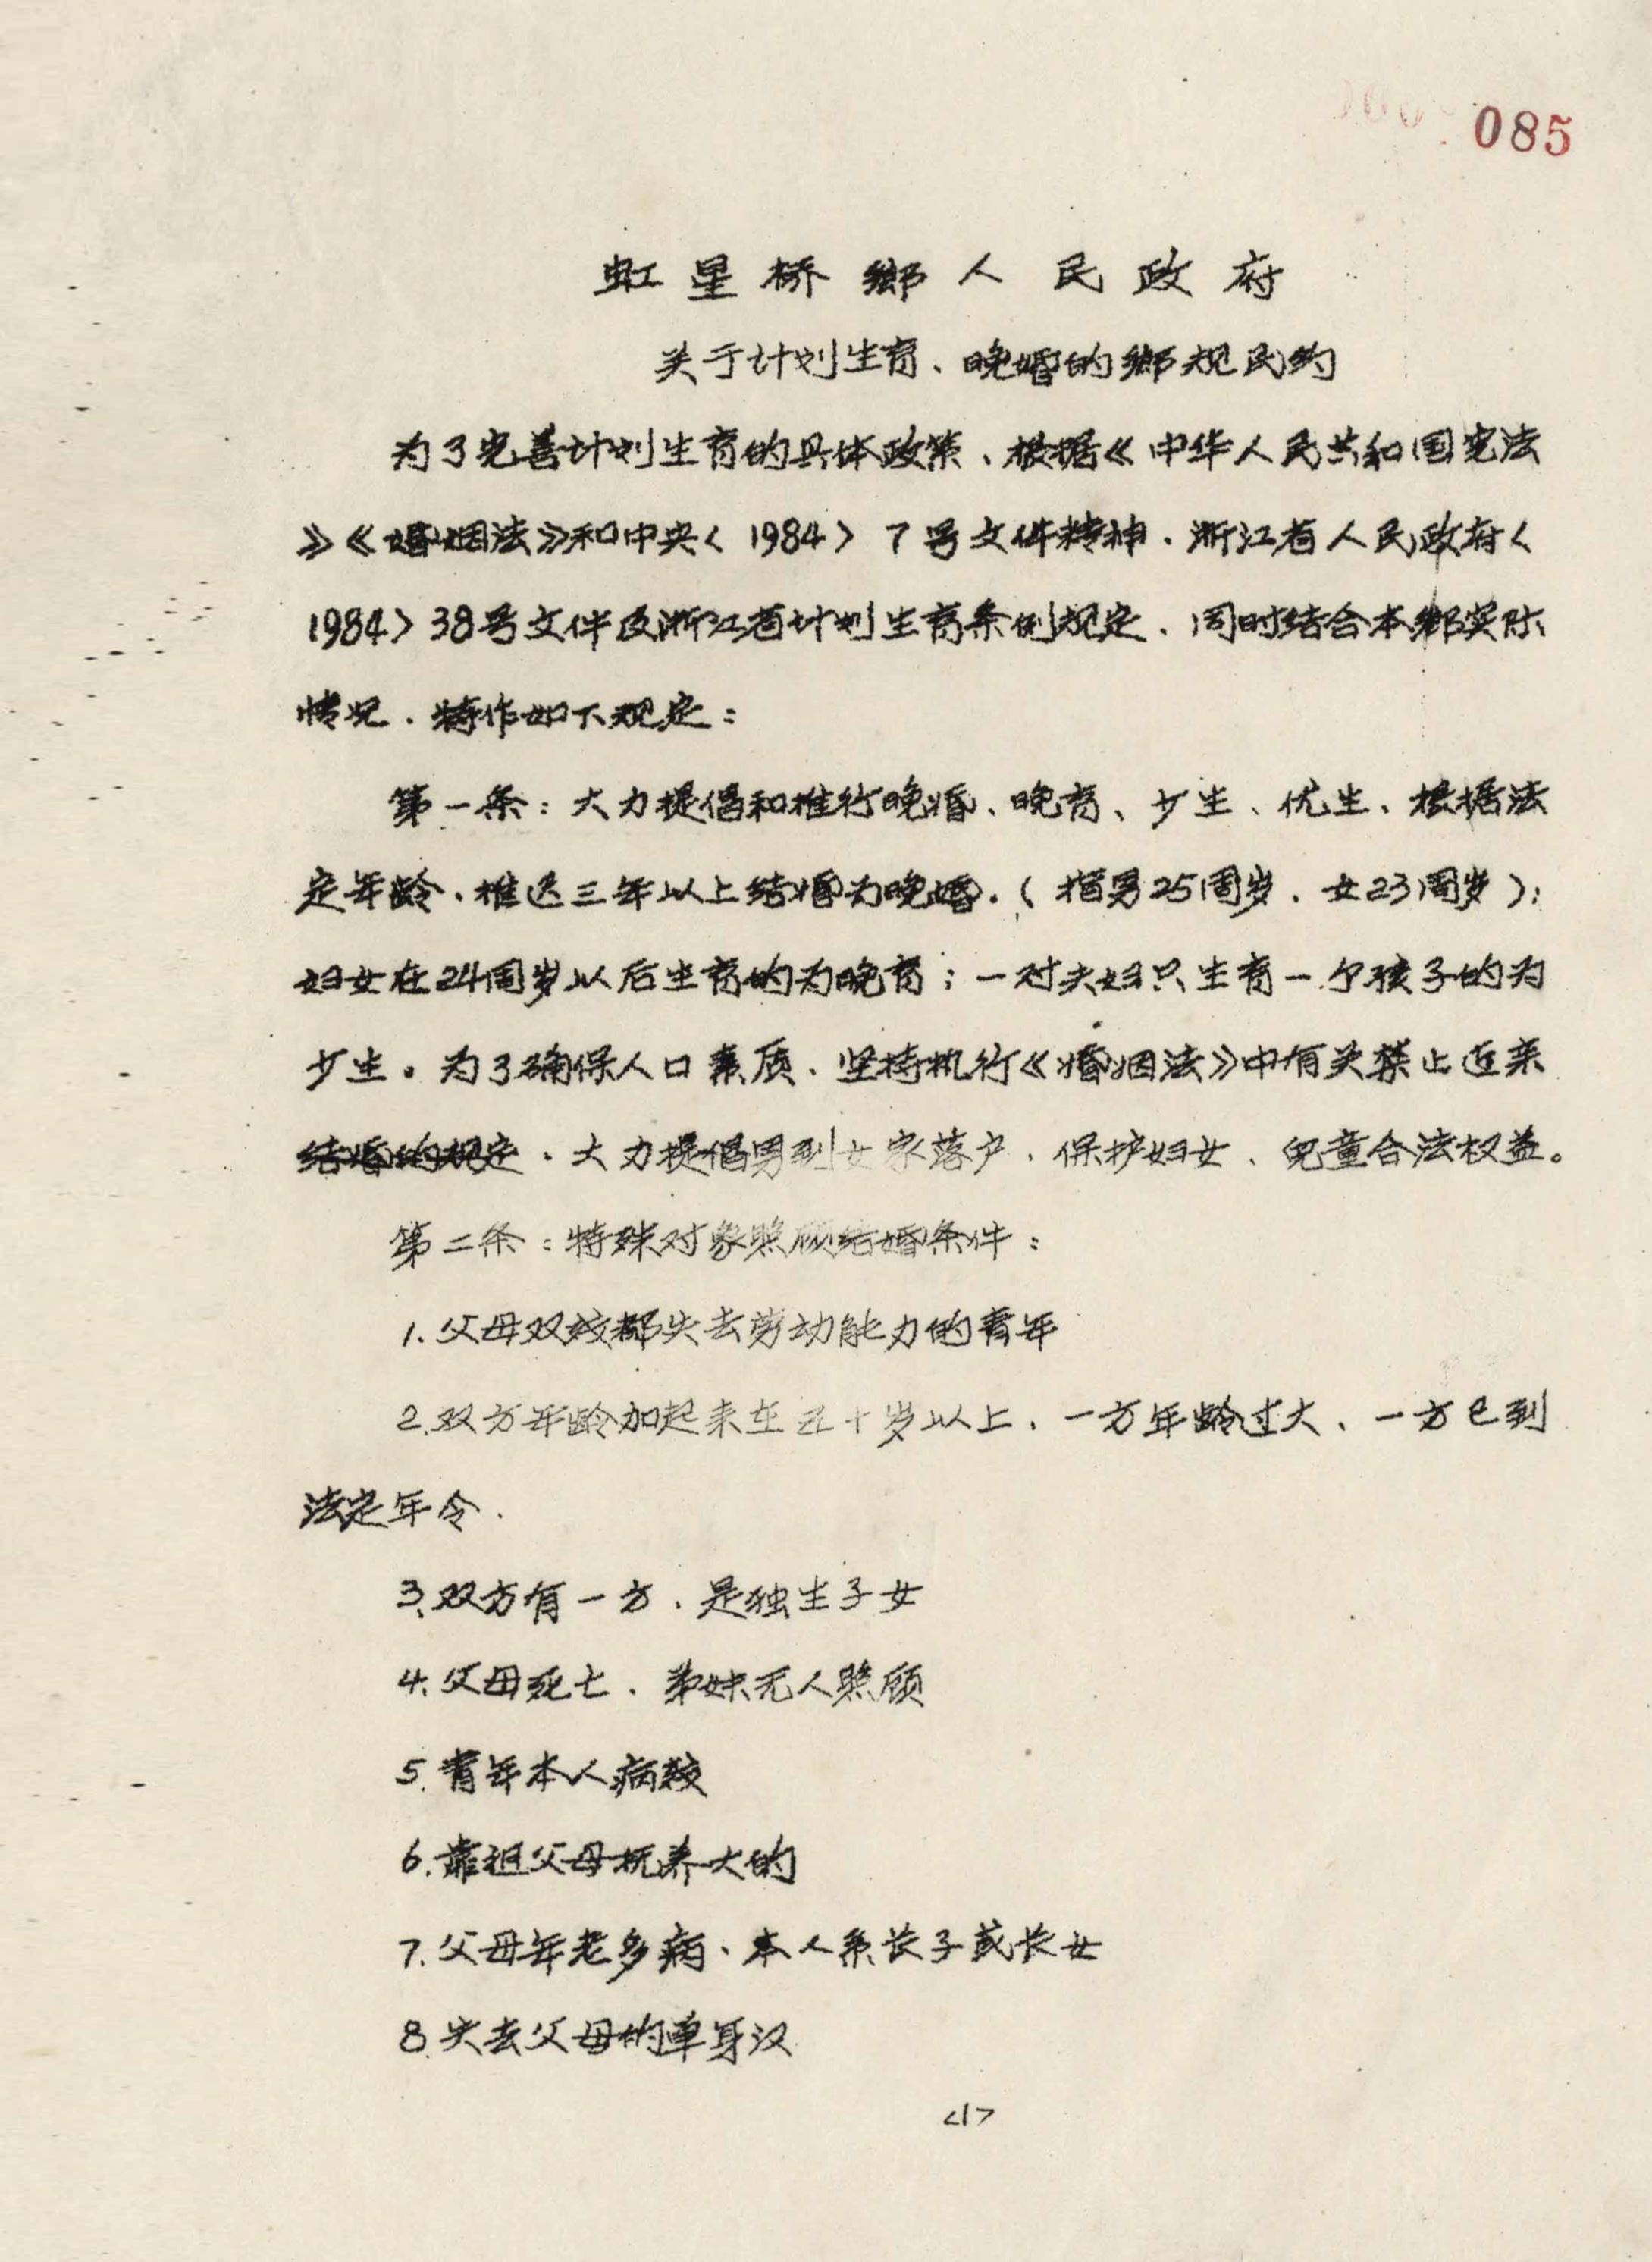 085
虹星桥鄉人民政府
关于计划生育、晚婚的鄉规民约
为了完善计划生育的具体政策、根据《中华人民共和国宪法
》《婚姻法》和中央〈1984〉7号文件精神、浙江省人民政府〈
1984〉38号文件及浙江省计划生育条例规定、同时结合本鄉实际
情况、特作如下规定：
第一条：大力提倡和推行晚婚、晚育、少生、优生、根据法
定年龄、推迟三年以上结婚为晚婚.（指男25周岁、女23周岁）；
妇女在24周岁以后生育的为晚育；一对夫妇只生育一个孩子的为
少生。为了确保人口素质、坚持执行《婚姻法》中有关禁止近亲
结婚的规定、大力提倡男到女家落户、保护妇女、儿童合法权益。
第二条：特殊对象照顾结婚条件：
1.父母双妏都失去劳动能力的青年
2.双方年龄加起来在五十岁以上、一方年龄过大、一方已到
法定年令.
3.双方有一方、是独生子女
4.父母死亡、弟妹无人照顾
5.青年本人病残
6.靠祖父母抚养大的
7.父母年老多病、本人系长子或长女
8.失去父母的单身汉
<1>